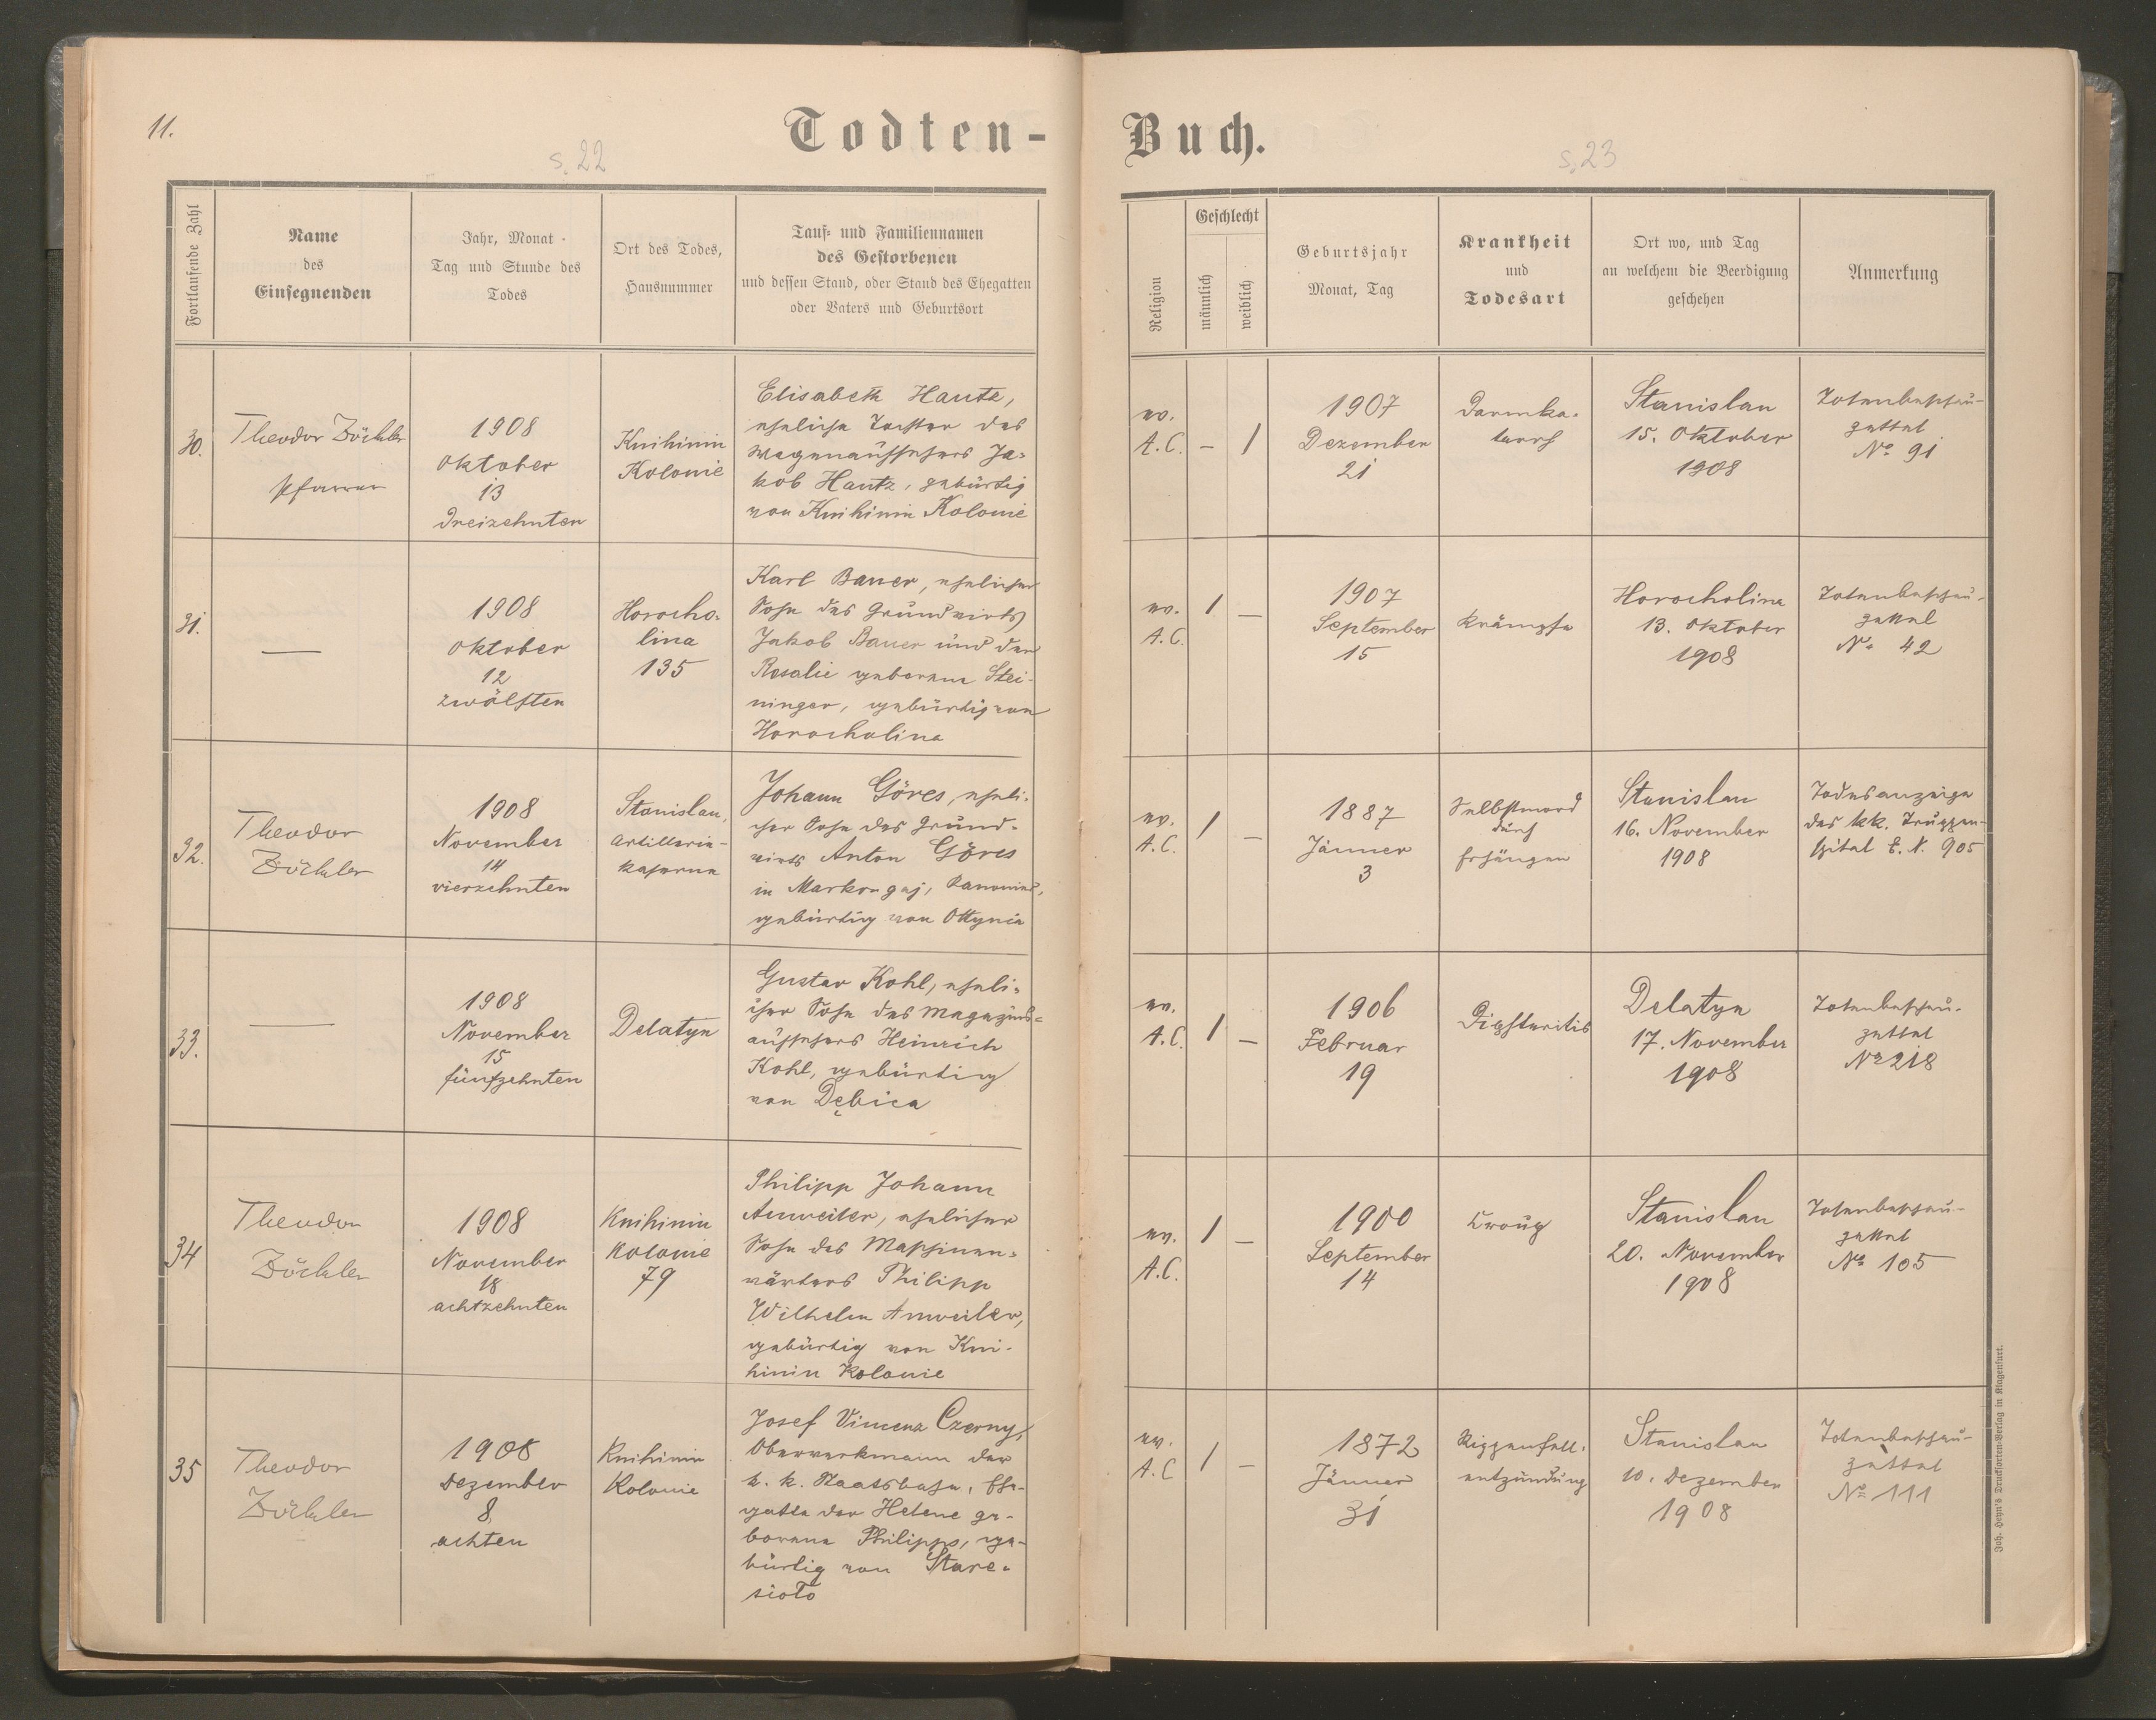 11.
s. 22
Todten-
Fortlaufende Zahl
Name
des
Einsegnenden
Jahr, Monat
Tag und Stunde des
Todes
Ort des Todes,
Hausnummer
Tauf- und Familiennamen
des Gestorbenen
und dessen Stand, oder Stand des Ehegatten
oder Vaters und Geburtsort
30.
Theodor Zöckler
Pfarrer
1908
Oktober
13
dreizehnten
Knihinin
Kolonie
Elisabeth Hautz,
eheliche Tochter des
Wagenaufsehers Ja-
kob Hautz, gebürtig
von Knihinin Kolonie
31.
—
1908
Oktober
12
zwölften
Horocho-
lina
135
Karl Bauer, ehelicher
Sohn des Grundwirts
Jakob Bauer und der
Rosalie geborene Stei-
ninger, gebürtig von
Horocholina
32.
Theodor
Zöckler
1908
November
14
vierzehnten
Stanislau,
Artillerie-
kaserne
Johann Göres, eheli-
cher Sohn des Grund-
wirts Anton Göres
in Markow gaj, Kanonier,
gebürtig von Ottynia
33.
—
1908
November
15
fünfzehnten
Delatyn
Gustav Kohl, eheli-
cher Sohn des Magazins-
aufsehers Heinrich
Kohl, gebürtig
von Dębica
34
Theodor
Zöckler
1908
November
18
achtzehnten
Knihinin
Kolonie
79
Philipp Johann
Anweiler, ehelicher
Sohn des Maschinen-
wärters Philipp
Wilhelm Anweiler,
gebürtig von Kni-
hinin Kolonie
35
Theodor
Zöckler
1908
Dezember
8
achten
Knihinin
Kolonie
Josef Vincenz Czerny,
Oberwerkmann der
k. k. Staatsbahn, Ehe-
gatte der Helene ge-
borene Philipps, ge-
bürtig von Stare-
sioło
Buch.
s. 23
Religion
Geschlecht
männlich
weiblich
Geburtsjahr
Monat, Tag
Krankheit
und
Todesart
Ort wo, und Tag
an welchem die Beerdigung
geschehen
Anmerkung
ev.
A.C.
–
1
1907
Dezember
21
Darmka-
tarrh
Stanislau
15. Oktober
1908
Totenbeschau-
zettel
No 91
ev.
A.C.
1
–
1907
September
15
Krämpfe
Horocholina
13. Oktober
1908
Totenbeschau-
zettel
No 42
ev.
A.C.
1
–
1887
Jänner
3
Selbstmord
durch
Erhängen
Stanislau
16. November
1908
Todesanzeige
des kk. Truppen-
spital E. N. 905
ev.
A.C.
1
–
1906
Februar
19
Diphteritis
Delatyn
17. November
1908
Totenbeschau-
zettel
No 218
ev.
A.C.
1
–
1900
September
14
Croup
Stanislau
20. November
1908
Totenbeschau-
zettel
No 105
ev.
A.C
1
–
1872
Jänner
31
Rippenfell-
entzündung
Stanislau
10. Dezember
1908
Totenbeschau-
zettel
No 111
Joh. Heyn's Drucksorten-Verlag in Klagenfurt.